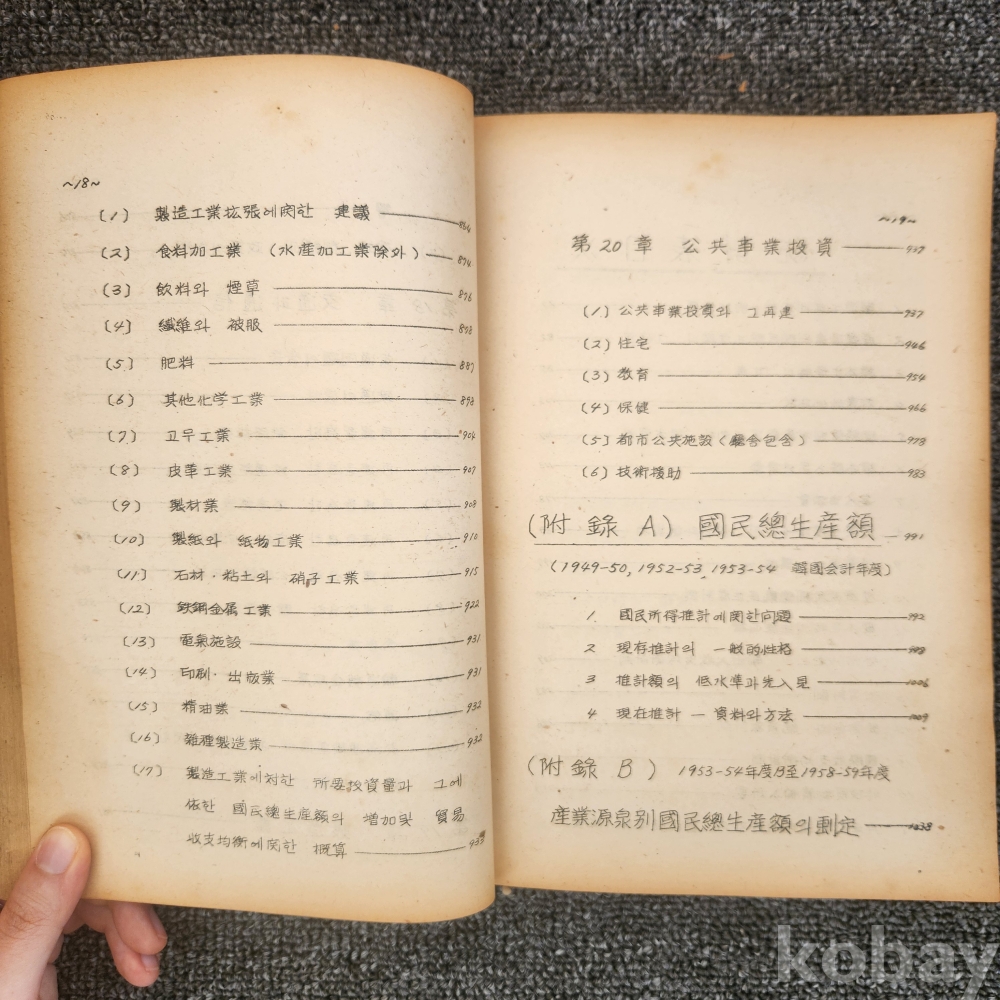 ~18~
(1) 製造工業拡張에関한 建議 864
(2) 食料加工業 (水産加工業除外) 874
(3) 飮料와 煙草 876
(4) 纖維와 被服 878
(5) 肥料 887
(6) 其他化学工業 898
(7) 고무工業 904
(8) 皮革工業 907
(9) 製材業 908
(10) 製紙와 紙物工業 910
(11) 石材·粘土와 硝子工業 915
(12) 鉄鋼金属工業 922
(13) 電氣施設 931
(14) 印刷·出版業 931
(15) 精油業 932
(16) 雜種製造業 932
(17) 製造工業에対한 所要投資量과 그에
依한 國民總生産額의 増加및 貿易
收支均衡에関한 概算
~19~
第20章 公共事業投資 937
(1) 公共事業投資와 그再建 937
(2) 住宅 946
(3) 教育 954
(4) 保健 966
(5) 都市公共施設(廳舎包含) 978
(6) 技術援助 983
(附錄 A) 國民總生産額 991
(1949-50, 1952-53, 1953-54 韓國会計年度)
1. 國民所得推計에関한問題 992
2 現存推計의 一般的性格
3 推計額의 低水準과先入見 1006
4 現在推計 — 資料와方法 1009
(附錄 B) 1953-54年度乃至1958-59年度
産業源泉别國民總生産額의劃定 1038
kobay